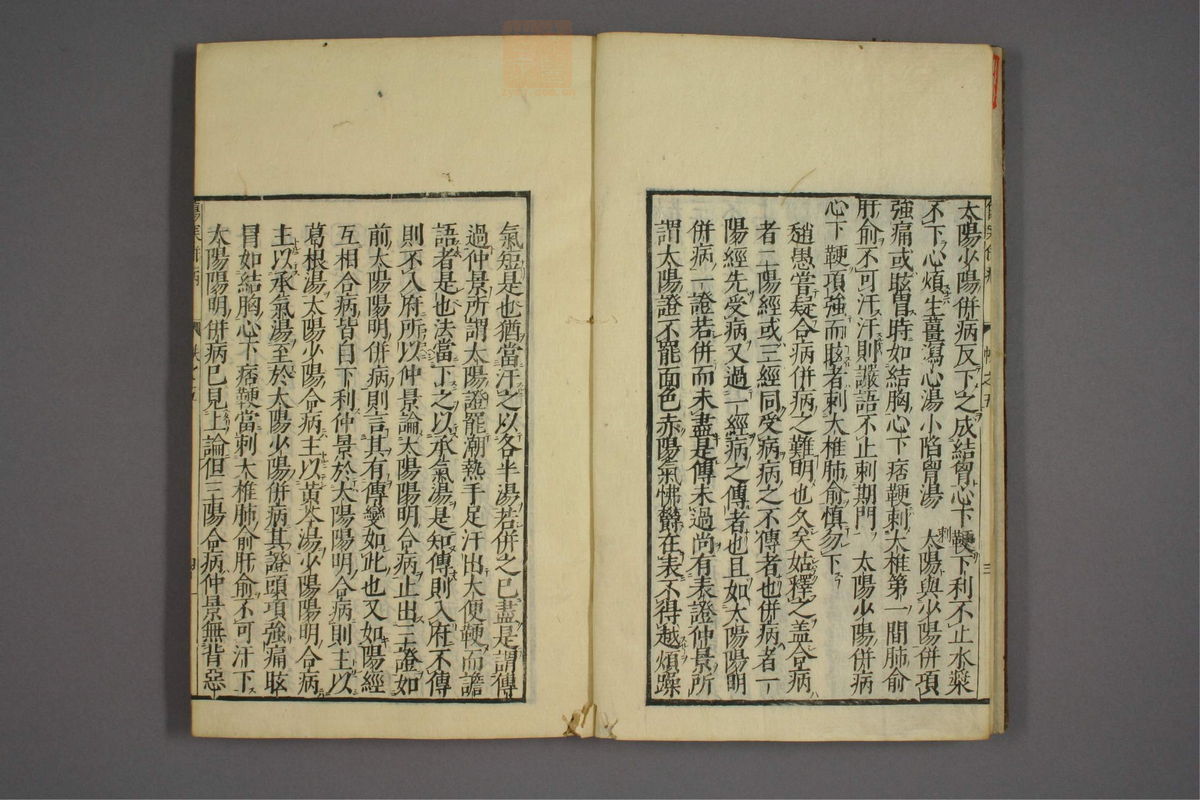 太陽少陽併病反下之成結胷心下鞕下利不止水漿
不下心煩生薑瀉心湯小陷胷湯　太陽與少陽併項
刺
強痛或眩冒時如結胸心下痞鞕刺大椎第一間肺俞
肝俞不可汗汗則讝語不止刺期門　太陽少陽併病
心下鞕項強而眩者刺大椎肺俞慎勿下
趙愚嘗疑合病併病之難明也久矣姑釋之盖合病
者二陽經或三經同受病病之不傳者也併病者一
陽經先受病又過一經病之傳者也且如太陽陽明
併病一證若併而未盡是傳未過尚有表證仲景所
謂太陽證不罷面色赤陽氣怫欝在表不得越煩躁
三
氣短是也猶當汗之以各半湯若併之已盡是謂傳
過仲景所謂太陽證罷潮熱手足汗出大便鞕而譫
語者是也法當下之以承氣湯是知傳則入府不傳
則不入府所以仲景論太陽陽明合病止出三證如
前太陽陽明併病則言其有傳變如此也又如陽經
互相合病皆自下利仲景於太陽陽明合病則主以
葛根湯太陽少陽合病主以黃芩湯少陽陽明合病
主以承氣湯至於太陽少陽併病其證頭項強痛眩
冒如結胸心下痞鞕當刺大椎肺俞肝俞不可汗下
太陽陽明併病已見上論但三陽合病仲景無背惡
四